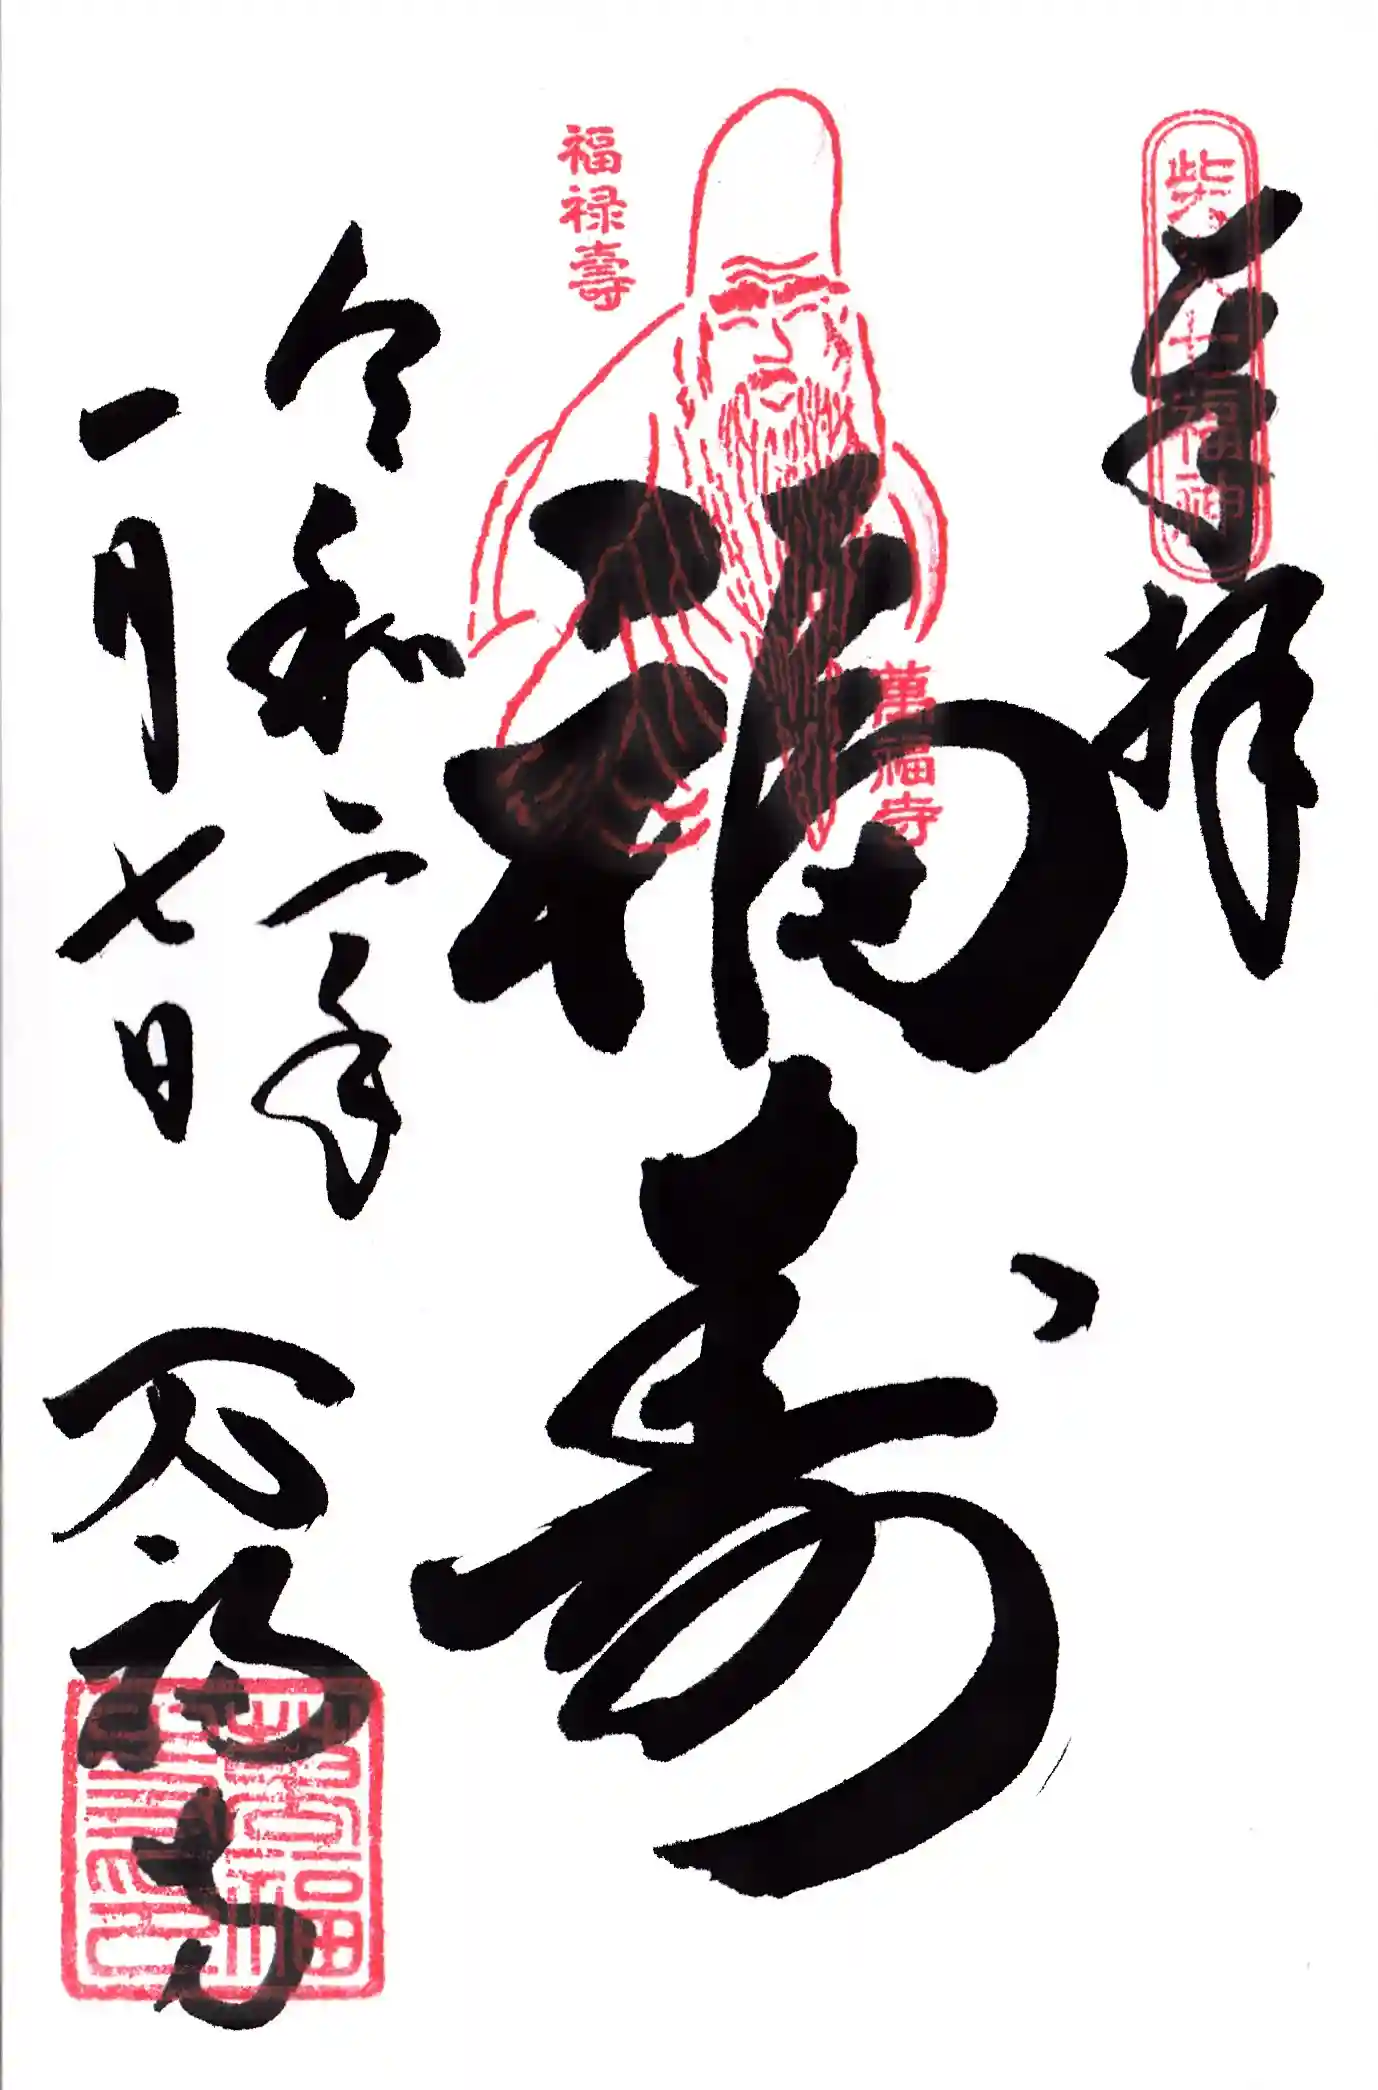 柴又七福神
奉拝
福禄壽
萬福寺
福寿
令和二年
一月七日
万福寺